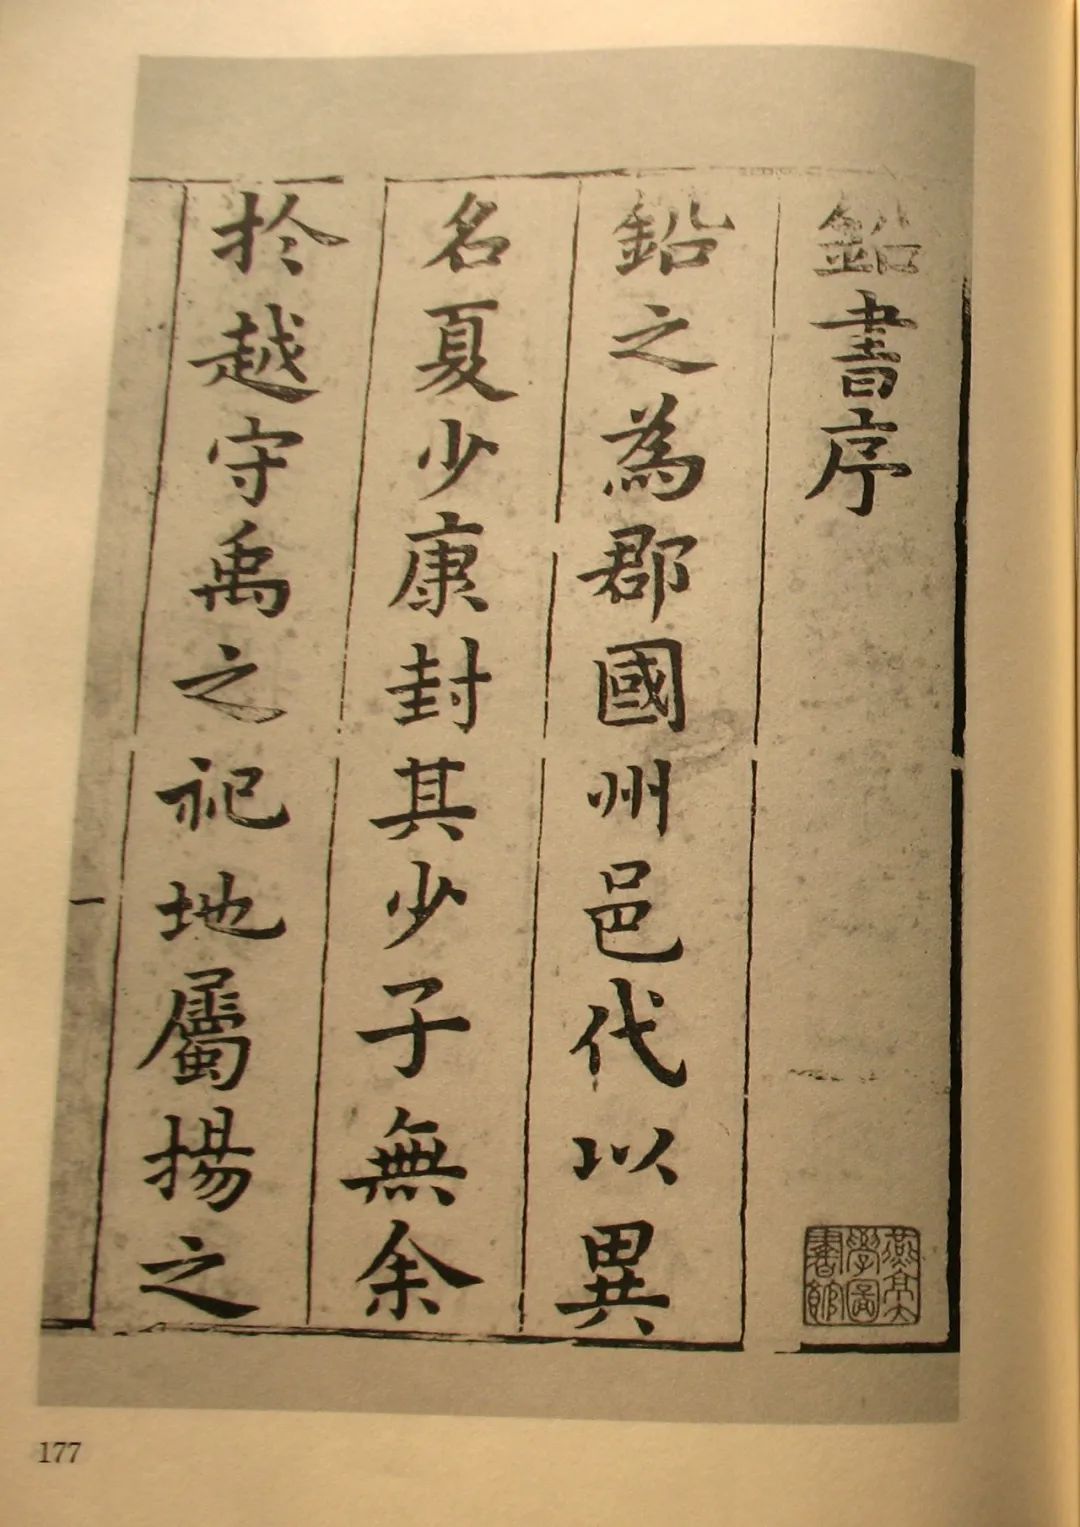 鉛書序
鉛之為郡國州邑代以異
名夏少康封其少子無余
於越守禹之祀地屬揚之
一
燕京大
學圖
書館
177